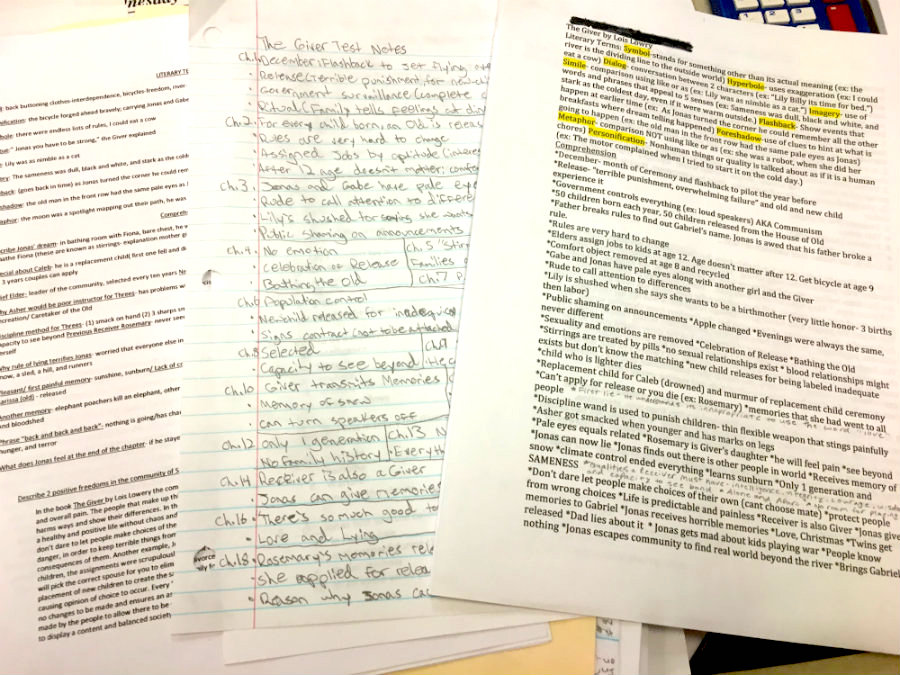 LITERARY TE
back buttoning clothes-interdependence, bicycles-freedom, river
the bicycle forged ahead bravely, carrying Jonas and Gabe
there were endless lots of rules, I could eat a cow
" Jonas you have to be strong," the Giver explained
Lily was as nimble as a cat
The sameness was dull, black and white, and stack as the cold
(goes back in time) as Jonas turned the corner he could rem
the old man in the front row had the same pale eyes as
the moon was a spotlight mapping out their path, he was
Compreh
Jonas' dream- in bathing room with Fiona, bare chest, he w
Fiona (these are known as stirrings- explanation mother
special about Caleb- he is a replacement child( first one fell and
3 years couples can apply
Elder- leader of the community, selected every ten years
Asher would be poor instructor for Threes- has problems w
Caretaker of the Old
discipline method for Threes- (1) smack on hand (2) 3 sharps
capacity to see beyond Previous Receiver Rosemary- never
Why rule of lying terrifies Jonas- worried that everyone else in
now, a sled, a hill, and runners
first painful memory- sunshine, sunburn/ Lack of
(old) - released
Another memory- elephant poachers kill an elephant, other
and bloodshed
Phrase "back and back and back"- nothing is going/has
hunger, and terror
What does Jonas feel at the end of the chapter- if he stays
Describe 2 positive freedoms in the community of S
In the book The Giver by Lois Lowry the com
and overall pain. The people that make up th
harms ways and show their differences. In th
a healthy and positive life without chaos and
don't dare to let people make choices of the
danger, in order to keep terrible things from
consequences of them. Another example,
children, the assignments were scrupulousl
will pick the correct spouse for you to elim
placement of new children to create the s
causing opinion of choice to occur. Every
no changes to be made and ensures an
made by the people to allow there to be
to display a content and balanced societ
The Giver Test Notes
Ch.1 December/Flashback to jet flying
Release(Terrible punishment for
Government surveillance (complete
Ritual (Family tells feelings at din
Ch.2 For every child born, an Old is releas
Rules are very hard to change
Assigned Jobs by aptitude (interes
After 12 age doesn't matter:
Ch.3 Jonas and Gabe have pale eye
Rude to call attention to differe
Lily's shushed for saying she wants
Public shaming on announcements
Ch.4 No emotion
Celebration of Release
Bathing the Old
Ch.5 "Stirr
Families
Ch.7
Ch.6 Population control
Newchild released for inadequa
Signs contract (not to be attached
Ch.8 Selected
Capacity to see beyond
Ch.10 Giver transmits Memories
Memory of snow
can turn speakers off
Ch.12 Only 1 generation
No Family history
Ch.13 N
Everyth
Ch.14 Receiver is also a Giver
Jonas can give memories
Ch.16 There's so much good to
Love and Lying
Ch.18 Rosemary's memories rel
She applied for relea
Reason why Jonas ca
The Giver by Lois Lowry
Literary Terms: Symbol-stands for something other than its actual meaning (ex: the
river is the dividing line to the outside world) Hyperbole- uses exaggeration (ex: I could
eat a cow) Dialog- conversation between 2 characters (ex: "Lily Billy its time for bed.")
Simile- comparison using like or as (ex: Lily was as nimble as a cat.") Imagery- use of
words and phrases that appeal to 5 senses (ex: Sameness was dull, black and white, and
stark as the coldest day, even if it were warm outside.) Flashback- Show events that
happen at earlier time (ex: As Jonas turned the corner he could remember all the other
breakfasts where dream telling happened) Foreshadow- use of clues to hint at what is
going to happen (ex: the old man in the front row had the same pale eyes as Jonas)
Metaphor- comparison NOT using like or as (ex: she was a robot, when she did her
chores) Personification- Nonhuman things or quality is talked about as if it is a human
(ex: The motor complained when I tried to start it on the cold day.)
Comprehension
*December- month of Ceremony and flashback to pilot the year before
*Release- "terrible punishment, overwhelming failure" and old and new child
experience it
*Government controls everything (ex: loud speakers) AKA Communism
*50 children born each year, 50 children released from the House of Old
*Father breaks rules to find out Gabriel's name. Jonas is awed that his father broke a
rule.
*Rules are very hard to change
*Elders assign jobs to kids at age 12. Age doesn't matter after 12. Get bicycle at age 9
*Comfort object removed at age 8 and recycled
*Gabe and Jonas have pale eyes along with another girl and the Giver
*Rude to call attention to differences
*Lily is shushed when she says she wants to be a birthmother (very little honor- 3 births
then labor)
*Public shaming on announcements *Apple changed *Evenings were always the same,
never different
*Sexuality and emotions are removed *Celebration of Release *Bathing the Old
*Stirrings are treated by pills *no sexual relationships exist * blood relationships might
exists but don't know the matching *new child releases for being labeled inadequate
*child who is lighter dies
*Replacement child for Caleb (drowned) and murmur of replacement child ceremony
*Can't apply for release or you die (ex: Rosemary) *memories that she had went to all
people
*Discipline wand is used to punish children- thin flexible weapon that stings painfully
*Asher got smacked when younger and has marks on legs
*Pale eyes equal related *Rosemary is Giver's daughter *he will feel pain *see beyond
*Jonas can now lie *Jonas finds out there is other people in world *Receives memory of
snow *climate control ended everything *learns sunburn *Only 1 generation and
SAMENESS
*Don't dare let people make choices of their own (cant choose mate) *protect people
from wrong choices *Life is predictable and painless *Receiver is also Giver *Jonas give
memories to Gabriel *Jonas receives horrible memories *Love, Christmas *Twins get
released *Dad lies about it * Jonas gets mad about kids playing war *People know
nothing *Jonas escapes community to find real world beyond the river *Brings Gabriel